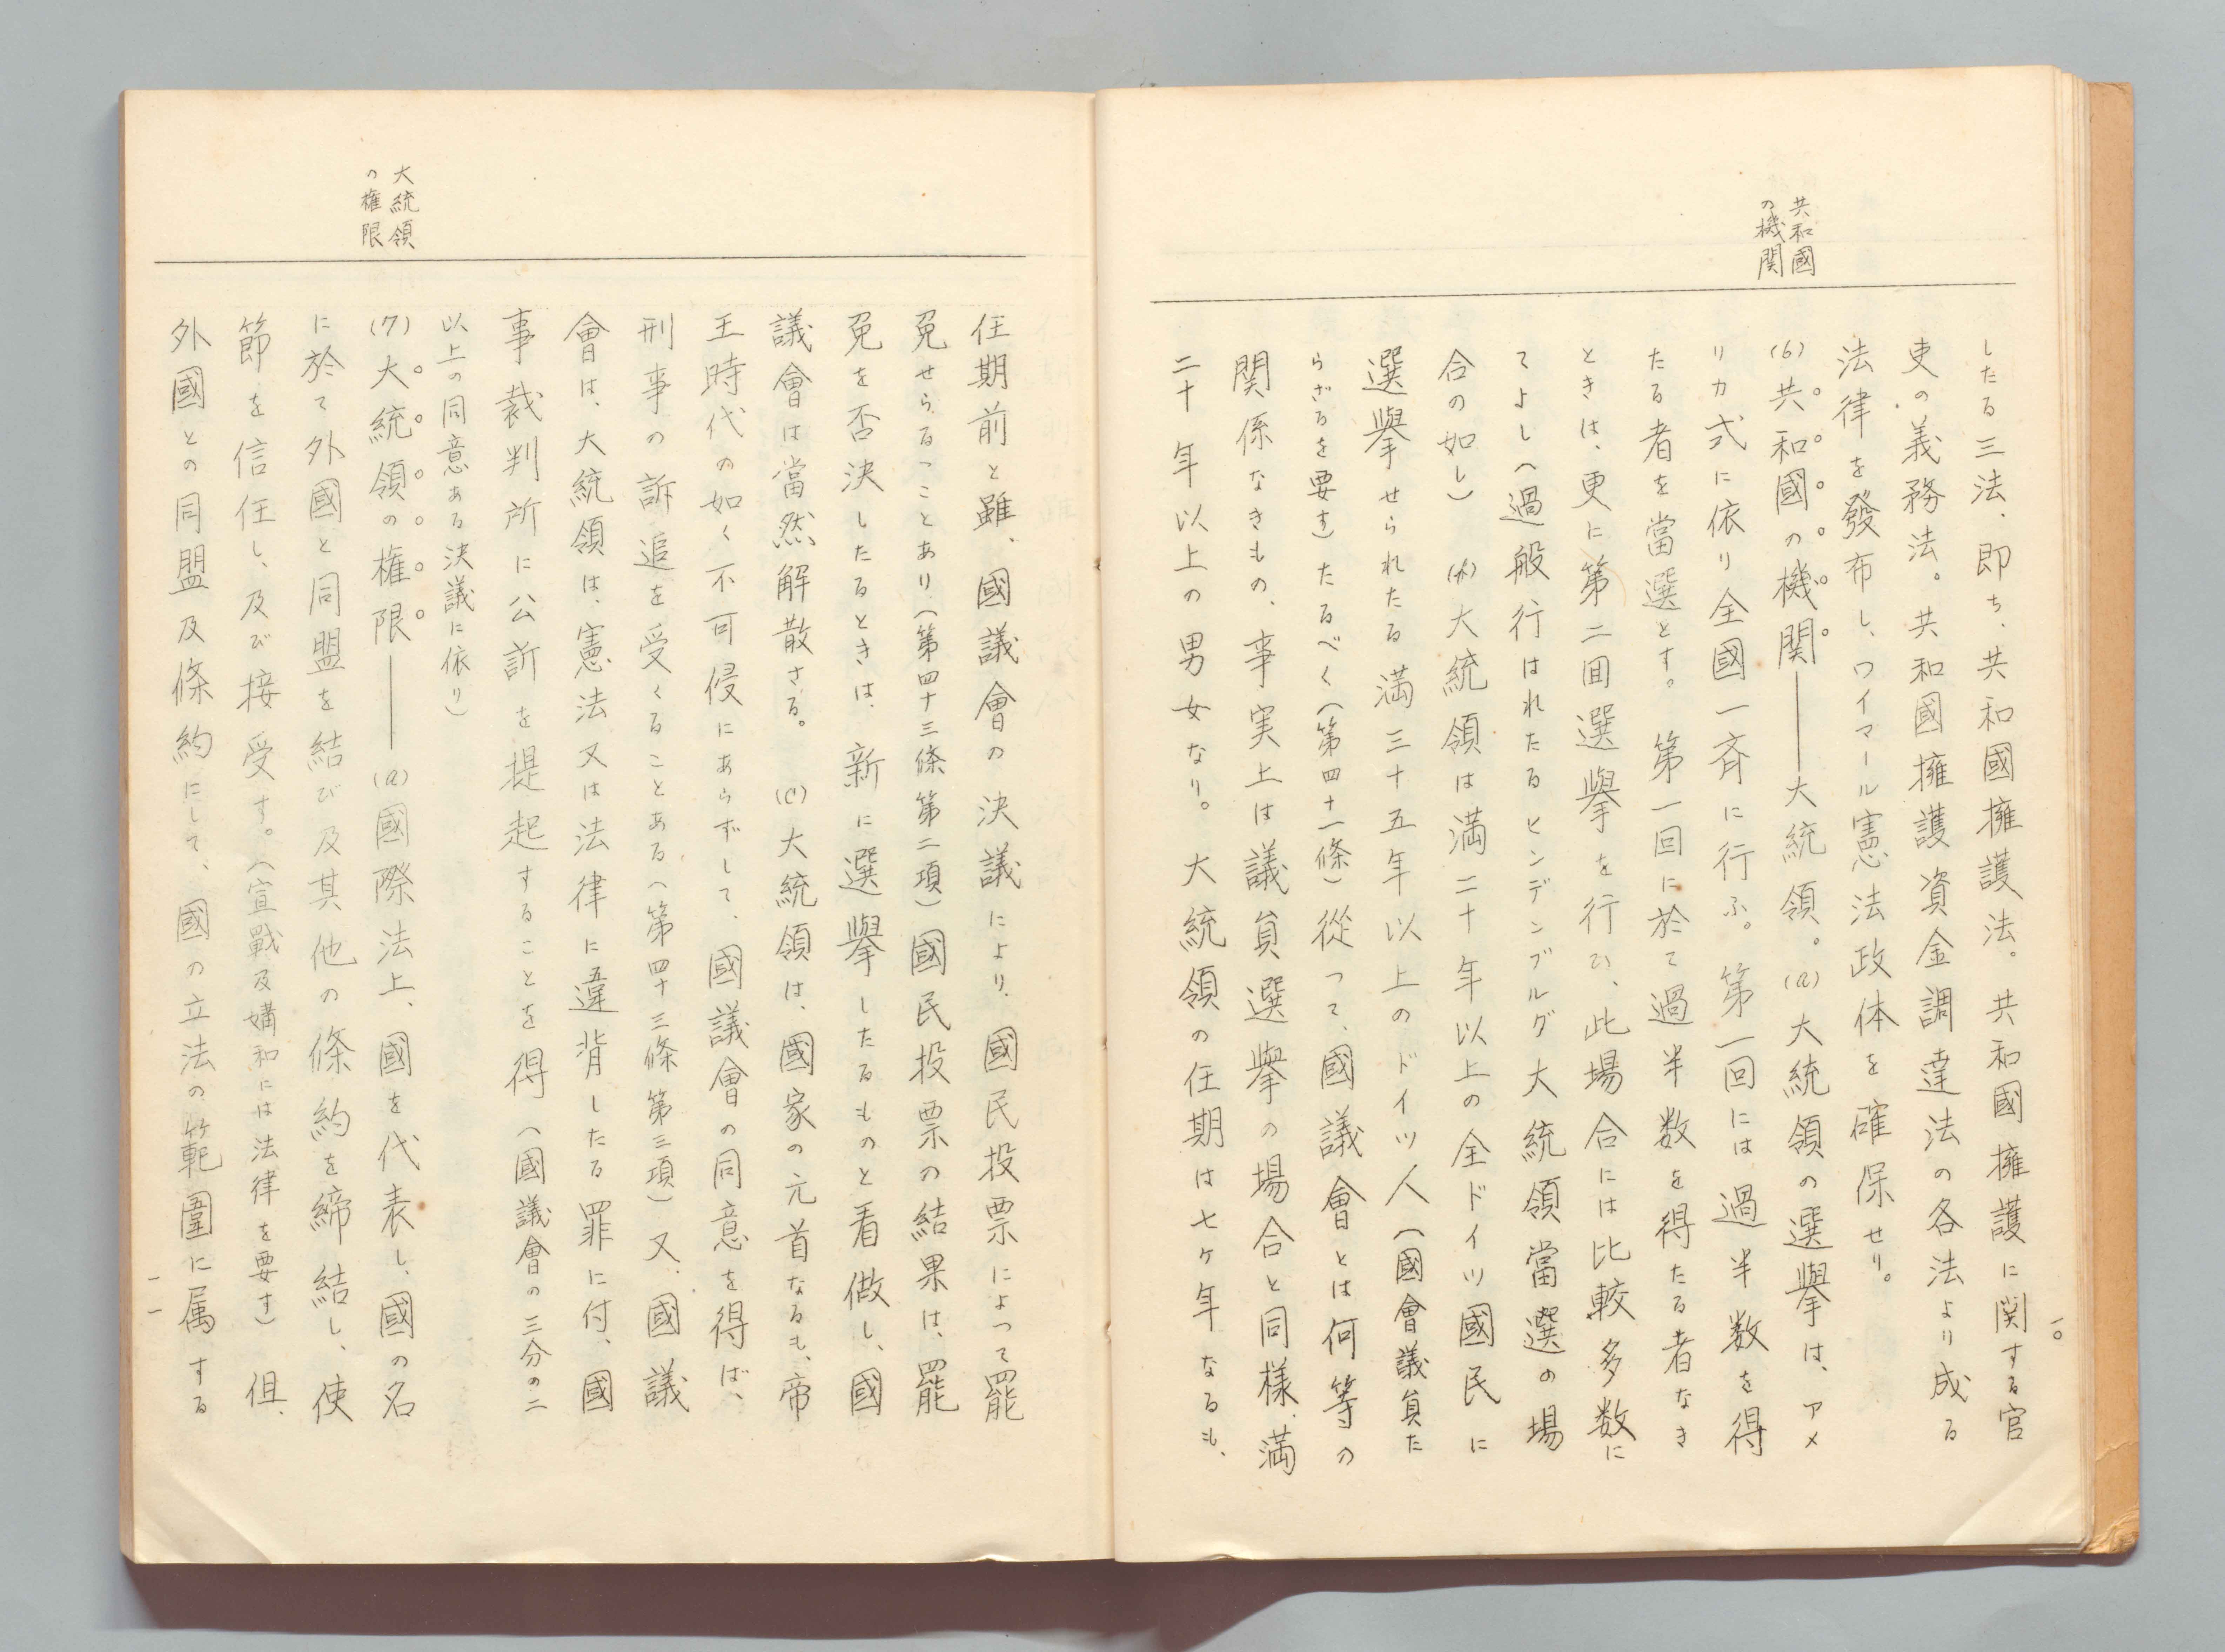 一〇
共和國
の機関
したる三法、即ち、共和國擁護法。共和國擁護に関する官
吏の義務法。共和國擁護資金調達法の各法より成る
法律を發布し、ワイマール憲法政体を確保せり。
(6)共和國の機関――大統領。(a)大統領の選擧は、アメ
リカ式に依り全國一斉に行ふ。第一回には過半数を得
たる者を當選とす。第一回に於て過半数を得たる者なき
ときは、更に第二囬選擧を行ひ、此場合には比較多数に
てよし(過般行はれたるヒンデンブルグ大統領當選の場
合の如し) (b)大統領は満二十年以上の全ドイツ國民に
選擧せられたる満三十五年以上のドイツ人(國會議員た
らざるを要す)たるべく(第四十一條)從つて、國議會とは何等の
関係なきもの、事実上は議員選擧の場合と同様、満
二十年以上の男女なり。大統領の任期は七ヶ年なるも、
大統領
の権限
任期前と雖、國議會の決議により、國民投票によつて罷
免せらるゝことあり、(第四十三條第二項)國民投票の結果は、罷
免を否決したるときは、新に選擧したるものと看做し、國
議會は當然解散さる。 (c)大統領は、國家の元首なるも、帝
王時代の如く不可侵にあらずして、國議會の同意を得ば、
刑事の訴追を受くることある(第四十三條第三項)又、國議
會は、大統領は、憲法又は法律に違背したる罪に付、國
事裁判所に公訴を提起することを得(國議會の三分の二
以上の同意ある決議に依り)
(7)大統領の権限――(a)國際法上、國を代表し、國の名
に於て外國と同盟を結び及其他の條約を締結し、使
節を信任し、及び接受す。(宣戰及媾和には法律を要す)但、
外國との同盟及條約にして、國の立法の範圍に属する
一一